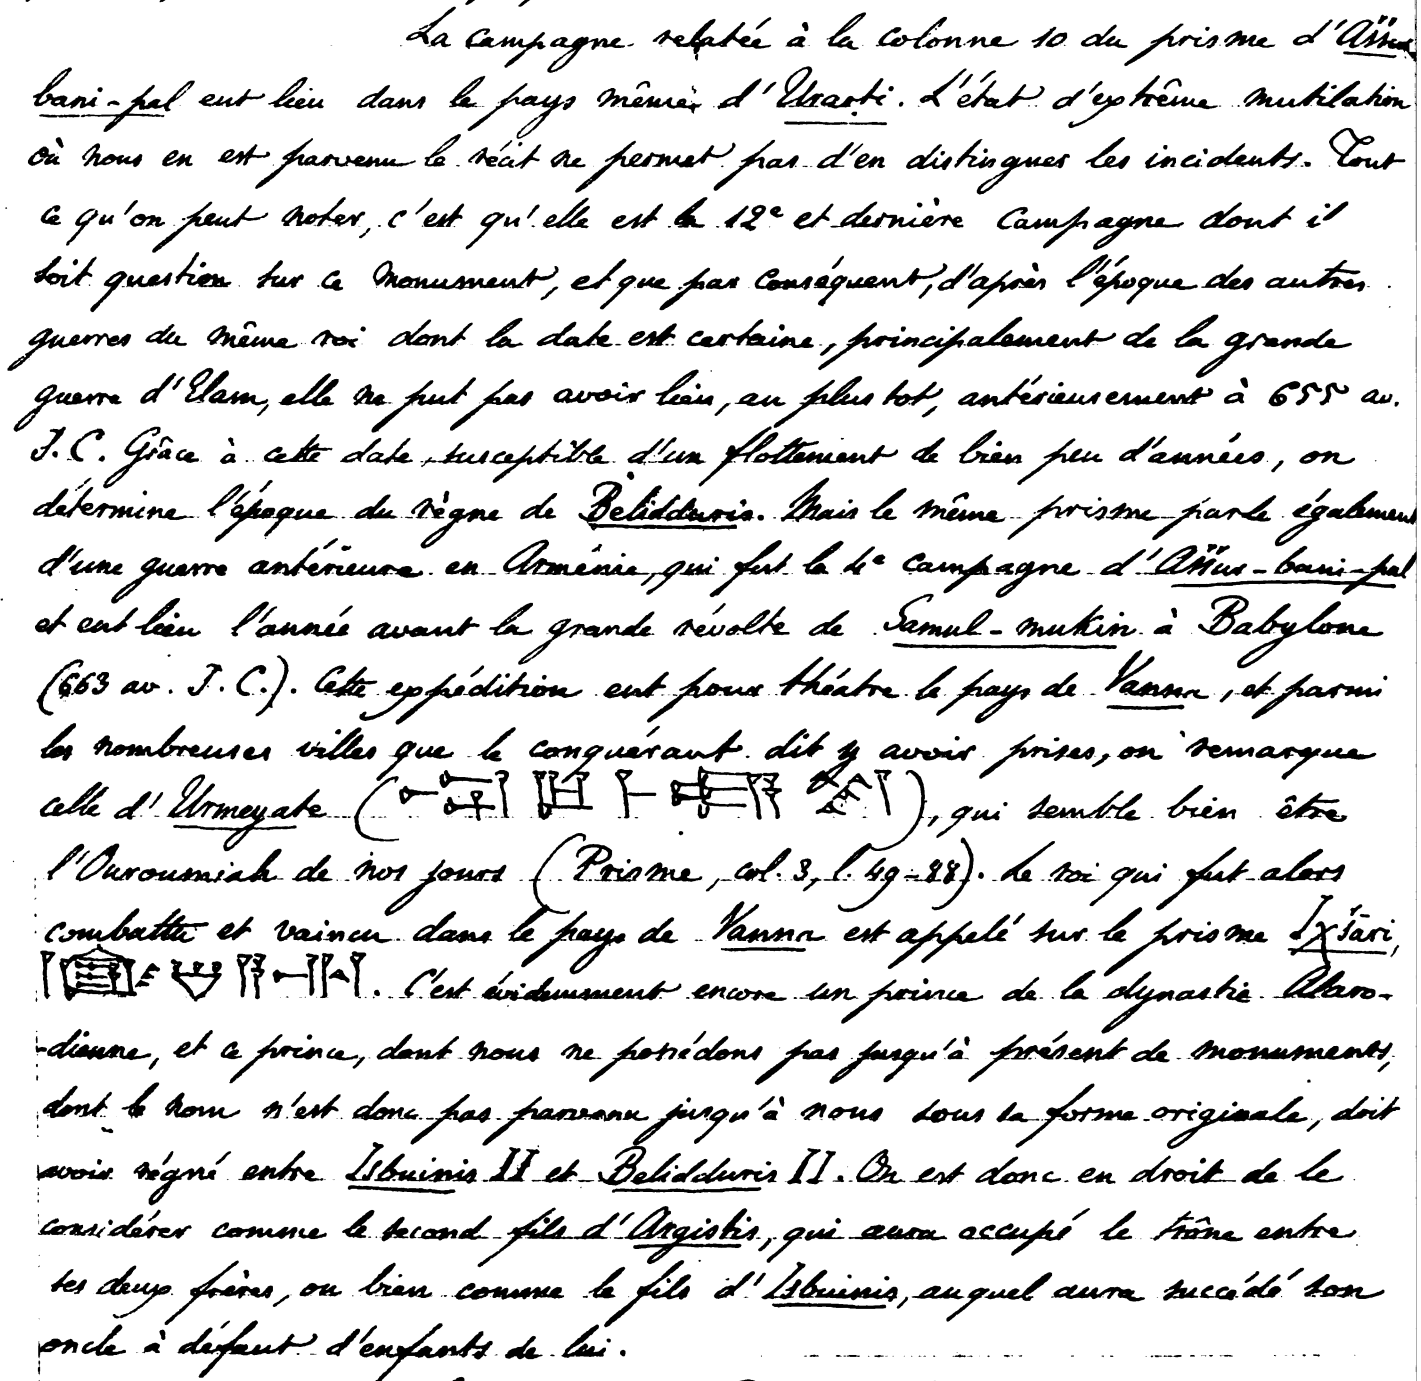 La campagne relatée à la colonne 10 du prisme d'Aššur-
bani-pal eut lieu dans le pays même d'Urarṭi. L'état d'extrême mutilation
où nous en est parvenu le récit ne permet pas d'en distinguer les incidents. Tout
ce qu'on peut noter, c'est qu'elle est la 12e et dernière campagne dont il
soit question sur ce monument, et que par conséquent, d'après l'époque des autres
guerres du même roi dont la date est certaine, principalement de la grande
guerre d'Elam, elle ne put pas avoir lieu, au plus tot, antérieurement à 655 av.
J. C. Grâce à cette date, susceptible d'un flottement de bien peu d'années, on
détermine l'époque du règne de Belidduris. Mais le même prisme parle également
d'une guerre antérieure en Arménie, qui fut la 4e campagne d'Aššur-bani-pal
et eut lieu l'année avant la grande révolte de Samul-mukin à Babylone
(663 av. J. C.). Cette expédition eut pour théatre le pays de Vanna, et parmi
les nombreuses villes que le conquérant dit y avoir prises, on remarque
celle d'Urmeyate ( ), qui semble bien être
l'Ouroumiah de nos jours (Prisme, col. 3, l. 49-88). Le roi qui fut alors
combattu et vaincu dans le pays de Vanna est appelé sur le prisme Iχšāri,
. C'est évidemment encore un prince de la dynastie Alaro-
-dienne, et ce prince, dont nous ne possédons pas jusqu'à présent de monuments,
dont le nom n'est donc pas parvenu jusqu'à nous sous sa forme originale, doit
avoir régné entre Isbuinis II et Belidduris II. On est donc en droit de le
considérer comme le second fils d'Argistis, qui aura occupé le trône entre
ses deux frères, ou bien comme le fils d'Isbuinis, auquel aura succédé son
oncle à défaut d'enfants de lui.